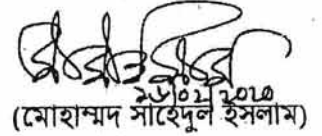 ২৬/০২/২০২০
(মোহাম্মদ সাহেদুল ইসলাম)